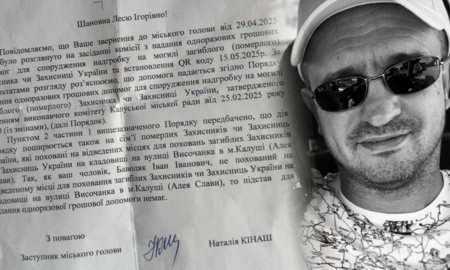 Шановна Лесю Ігорівно!
Повідомляємо, що Ваше звернення до міського голови від 29.04.2025
було розглянуто на засіданні комісії з надання одноразових грошових
для спорудження надгробку на могилі загиблого (померлого)
чи Захисниці України та встановлення QR коду 15.05.2025р. За
розгляду роз'яснюємо, що допомога надається згідно Порядку
одноразових грошових допомог для спорудження надгробку на могилі
(померлого) Захисника чи Захисниці України, затвердженого
виконавчого комітету Калуської міської ради від 25.02.2025 року
(із змінами), (далі Порядок).
Пунктом 2 частини 1 вищезазначеного Порядку передбачено, що дія
поширюється також на сім'ї померлих Захисників чи Захисниць
які поховані на відведених місцях для поховань загиблих Захисників
Захисниць України на кладовищі на вулиці Височанка в м.Калуші (Алея
Слави). Так, як ваш чоловік, Баволяк Іван Іванович, не похований на
відведеному місці для поховання загиблих Захисників чи Захисниць України на
кладовищі на вулиці Височанка в м.Калуші (Алея Слави), то підстав для
надання одноразової грошової допомоги немає.
З повагою
Заступник міського голови Наталія КІНАШ